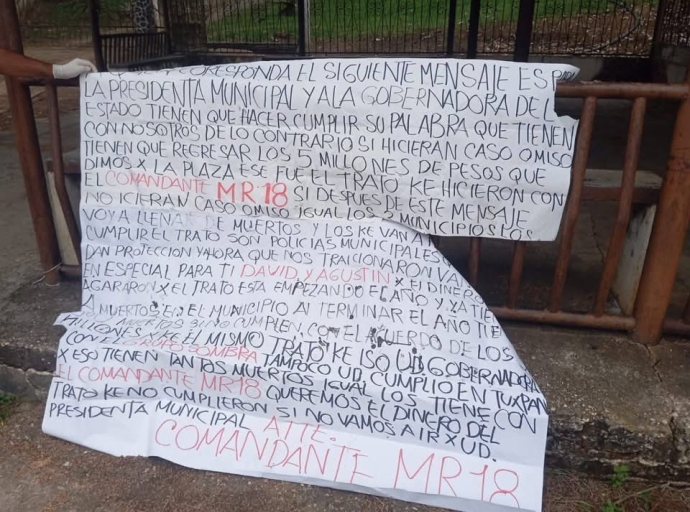 CORESPONDA EL SIGUIENTE MENSAJE ES
LA PRESIDENTA MUNICIPAL Y A LA GOBERNADORA DEL
ESTADO TIENEN QUE HACER CUMPLIR SU PALABRA QUE TIENEN
CON NOSOTROS DE LO CONTRARIO SI HICIERAN CASO OMISO
TIENEN QUE REGRESAR LOS 5 MILLONES DE PESOS QUE
DIMOS X LA PLAZA ESE FUE EL TRATO KE HICIERON CON
EL COMANDANTE MR18 SI DESPUES DE ESTE MENSAJE
NO ICIERAN CASO OMISO IGUAL LOS MUNICIPIOS LOS
VOY A LLENAR DE MUERTOS Y LOS KE VAN A
CUMPLIR EL TRATO SON POLICIAS MUNICIPALES
DAN PROTECCION Y AHORA QUE NOS TRAICIONARON VA
EN ESPECIAL PARA TI DAVID Y AGUSTIN X EL DINERO
AGARARON X EL TRATO ESTA EMPEZANDO EL AÑO Y YA TIE
MUERTOS EN EL MUNICIPIO AL TERMINAR EL AÑO TIE
MUERTOS SI NO CUMPLEN CON EL AKUERDO DE LOS
MILLONES KE EL MISMO TRATO KE ISO UD GOBERNADORA
CON EL GRUPO SOMBRA TAMPOCO UD CUMPLIO EN TUXPAN
X ESO TIENEN TANTOS MUERTOS IGUAL LOS TIENE CON
EL COMANDANTE MR18 QUEREMOS EL DINERO DEL
TRATO KE NO CUMPLIERON SI NO VAMOS A IR X UD.
PRESIDENTA MUNICIPAL ATTE.
COMANDANTE MR18